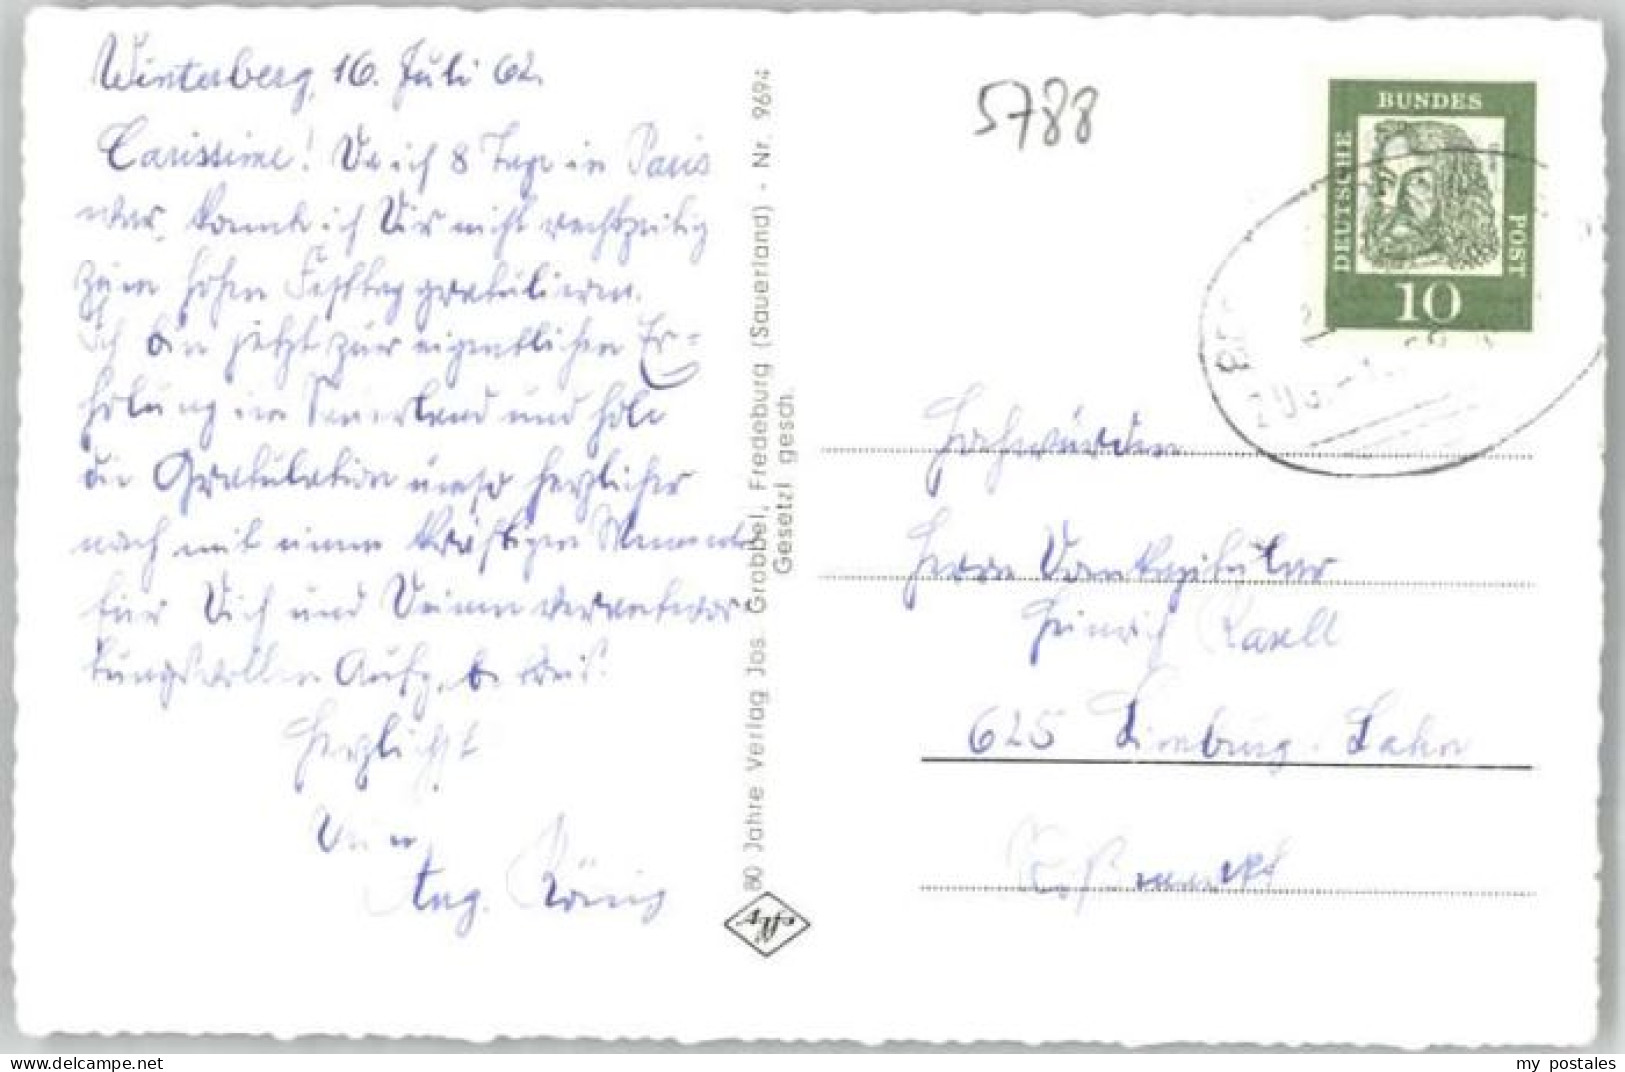 Winterberg, 16. Juli 62.
Carissime! Da ich 8 Tage in Paris
war, konnte ich Dir nicht rechtzeitig
zum hohen Festtag gratulieren.
Ich bin jetzt zur eigentlichen Er-
holung im Sauerland und hole
die Gratulation umso herzlicher
nach mit einem kräftigen Memento
für Dich und Deinen verantwor
tungsvollen Aufgabenkreis.
Herzlichst
Dein
Aug. König
80 Jahre Verlag Jos. Grobbel, Fredeburg (Sauerland) - Nr. 9694
Gesetzl gesch.
5788
BUNDES
DEUTSCHE
POST
10
Hochwürden
Herrn Domkapitular
Heinrich
625 Limburg-Lahn
Roßmarkt
my-postales.com